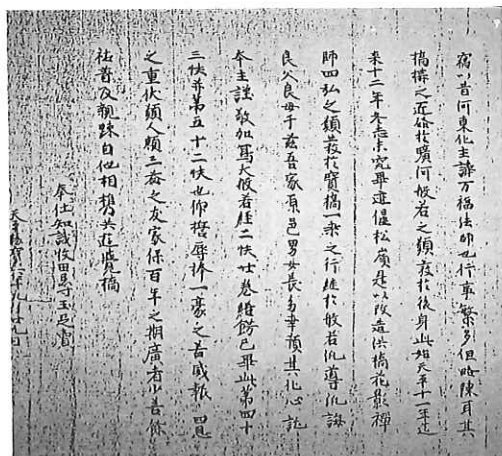 竊以昔河東化主諱万福法師也行事繁多但略陳耳其
橋搆之匠啓於曠河般若之願發於後身此始天平十一年迄
来十二年冬志未究畢遷偃松嶺是以改造洪橋花影禅
師四弘之願發於寳橋一乗之行継於般若汎導汎誨
良父良母于茲吾家原邑男女長幼幸預其化心託
本主謹敬加寫大般若経二帙廿巻繕餝已畢此第四十
三帙并第五十二帙也仰誓辱捧一豪之善咸報四恩
之重伏願人頼三益之友家保百年之期廣者小善餘
祐普及親踈自他相携共遊覚橋
奉仕知識牧田忌寸玉足賣
天平勝寳六年九月廿九日